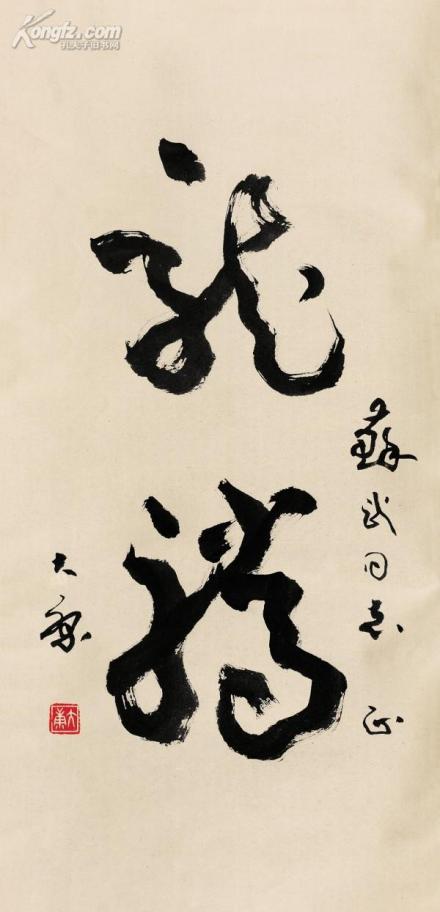 Kongfz.com
孔夫子旧书网
蘇武同志 正
龍
騰
大康
大康